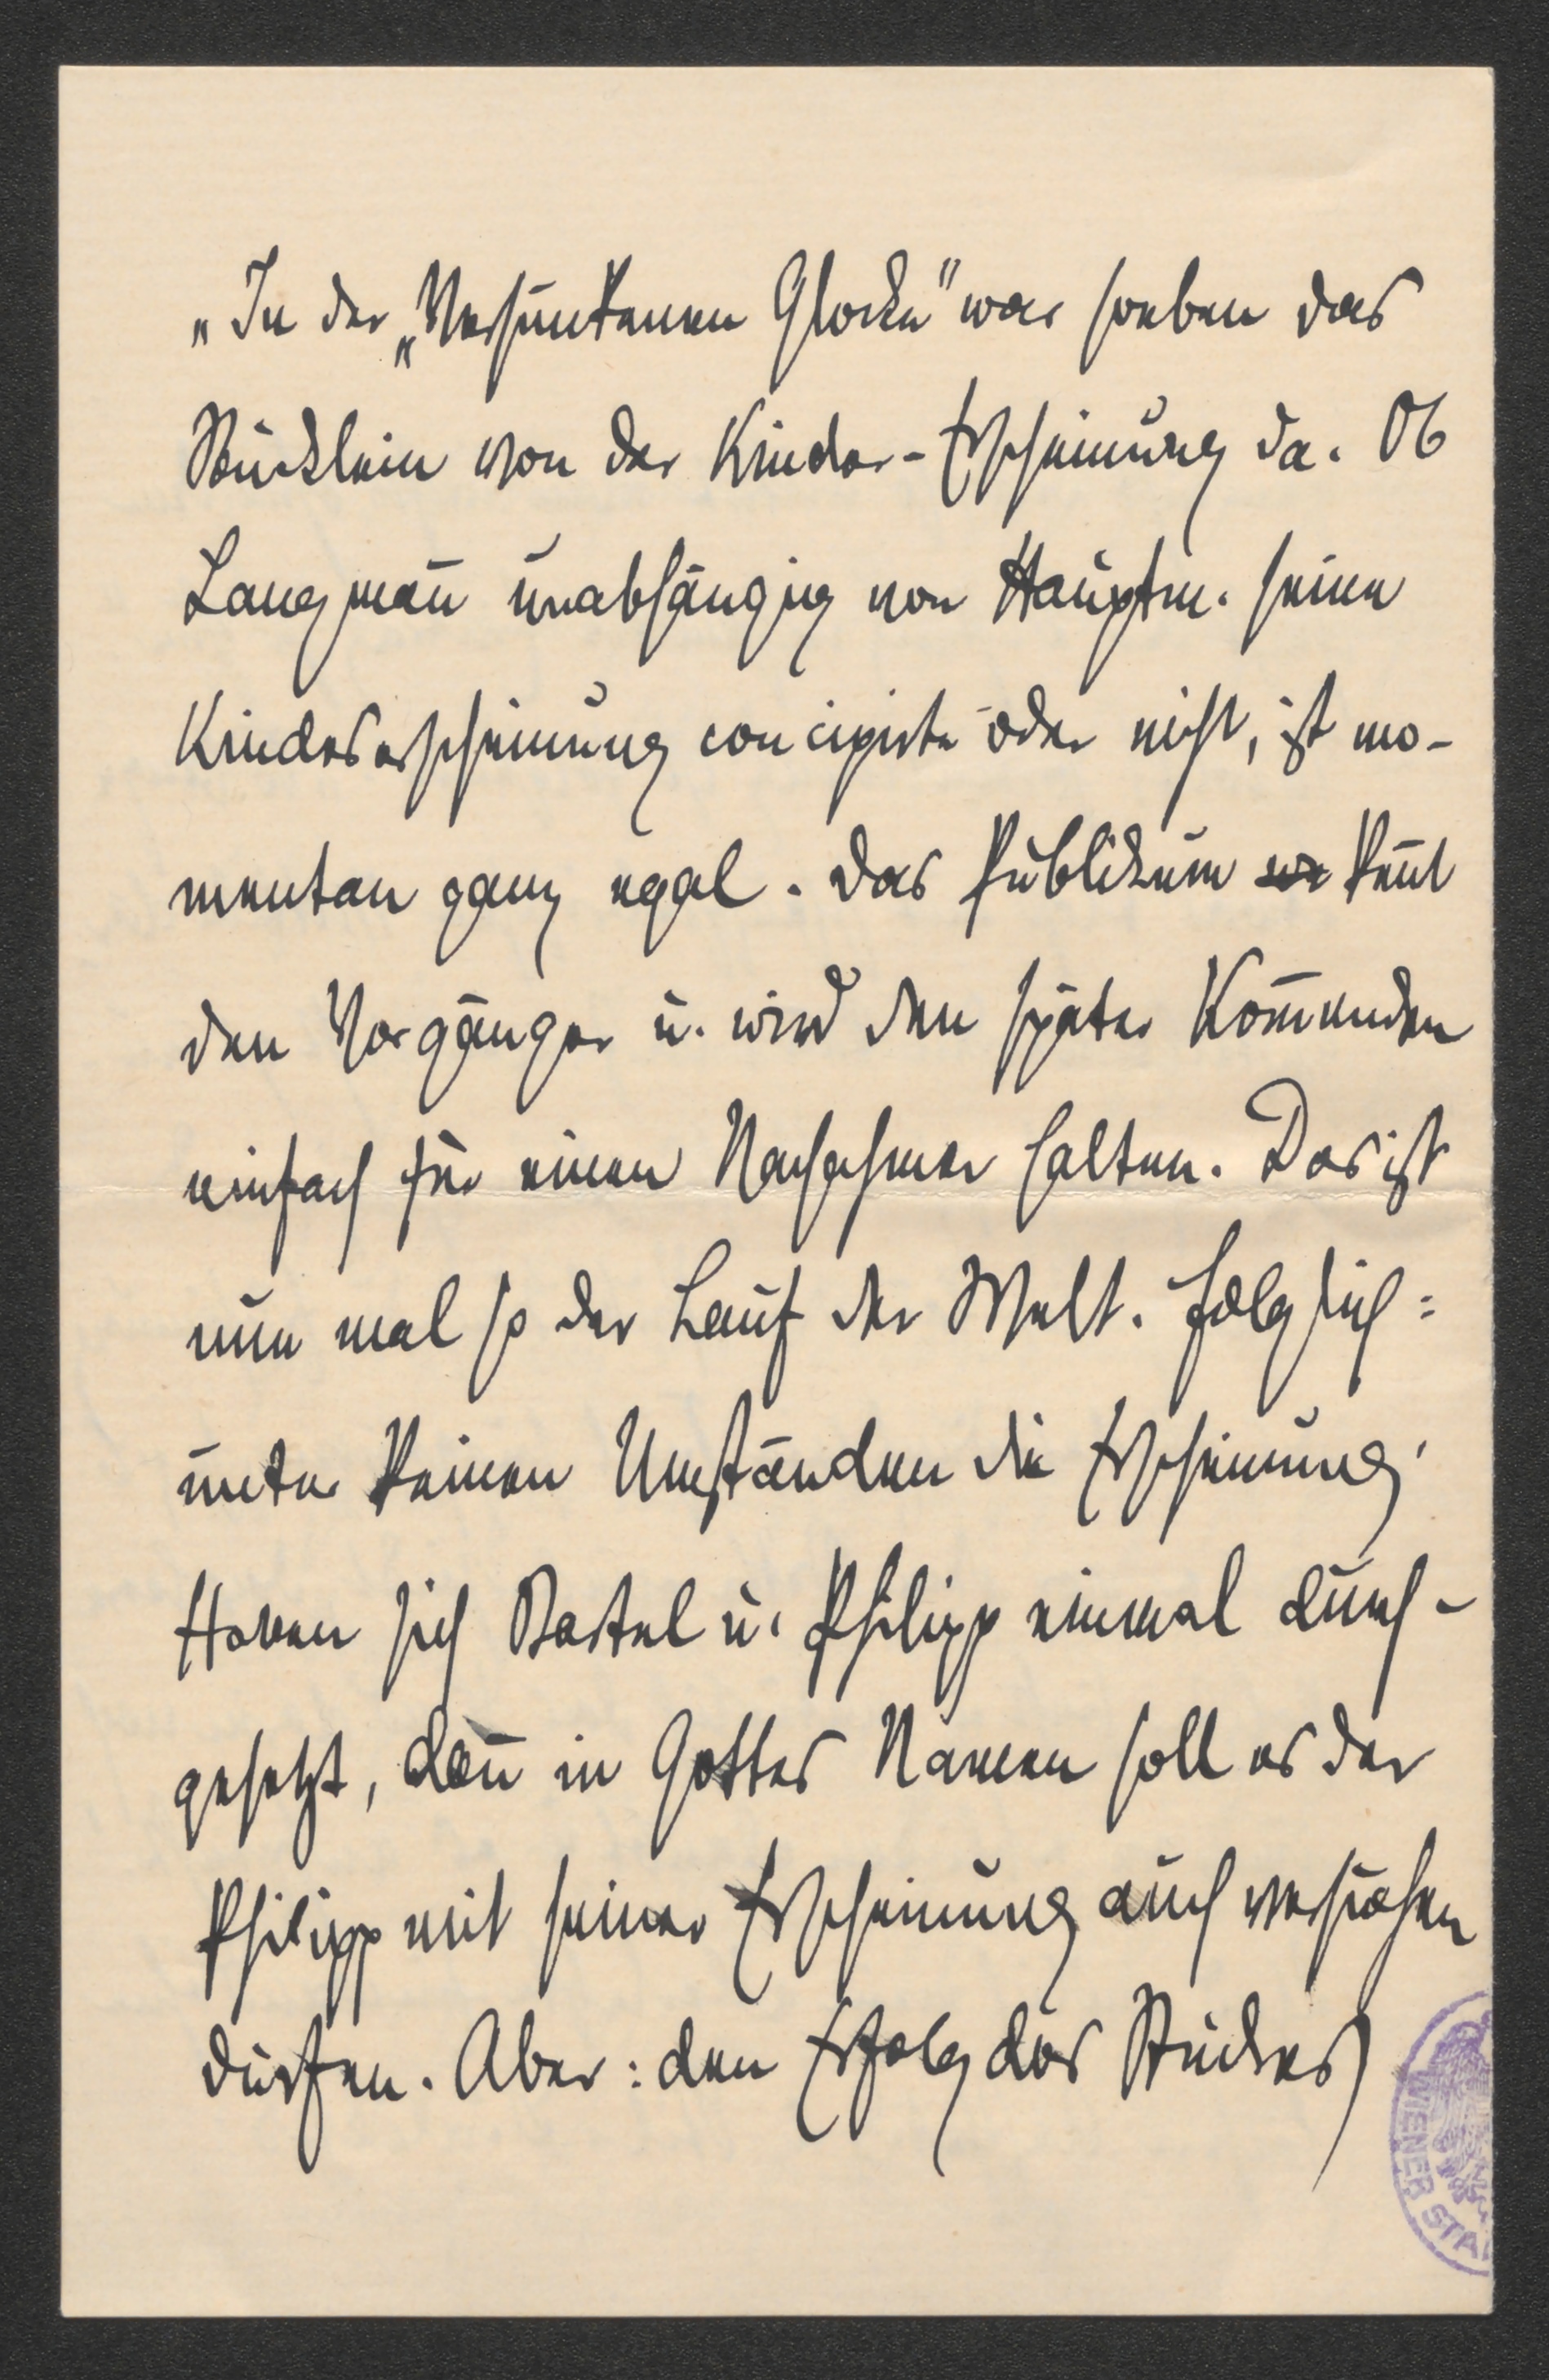 „In der „Versunkenen Glocke" war soeben das
Stücklein von der Kinder-Erscheinung da. Ob
Langman̄ unabhängig von Hauptm. seine
Kindererscheinung concipirte oder nicht, ist mo-
mentan ganz egal. Das Publikum ken̄t
den Vorgänger u. wird den später Kom̄enden
einfach für einen Nachahmer halten. Das ist
nun mal so der Lauf der Welt. Folglich:
unter keinen Umständen die Erscheinung.
Haben sich Bartel u. Philipp einmal durch-
gesetzt, dan̄ in Gottes Namen soll es der
Philipp mit seiner Erscheinung auch versuchen
dürfen. Aber: den Erfolg des Stückes
WIENER STA